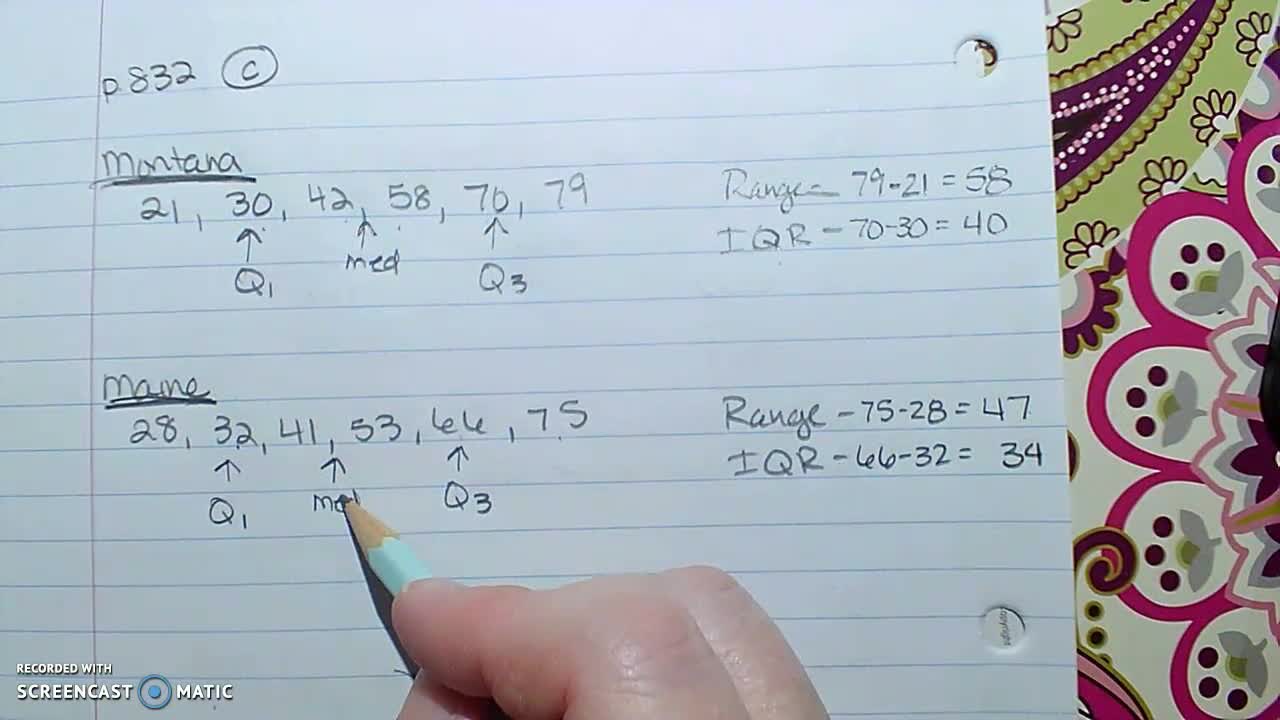 p.832 C
Montana
21, 30, 42, 58, 70, 79
Q1 med Q3
Range - 79-21 = 58
IQR - 70-30 = 40
Maine
28, 32, 41, 53, 66, 75
Q1 med Q3
Range - 75-28 = 47
IQR - 66-32 = 34
RECORDED WITH
SCREENCAST MATIC